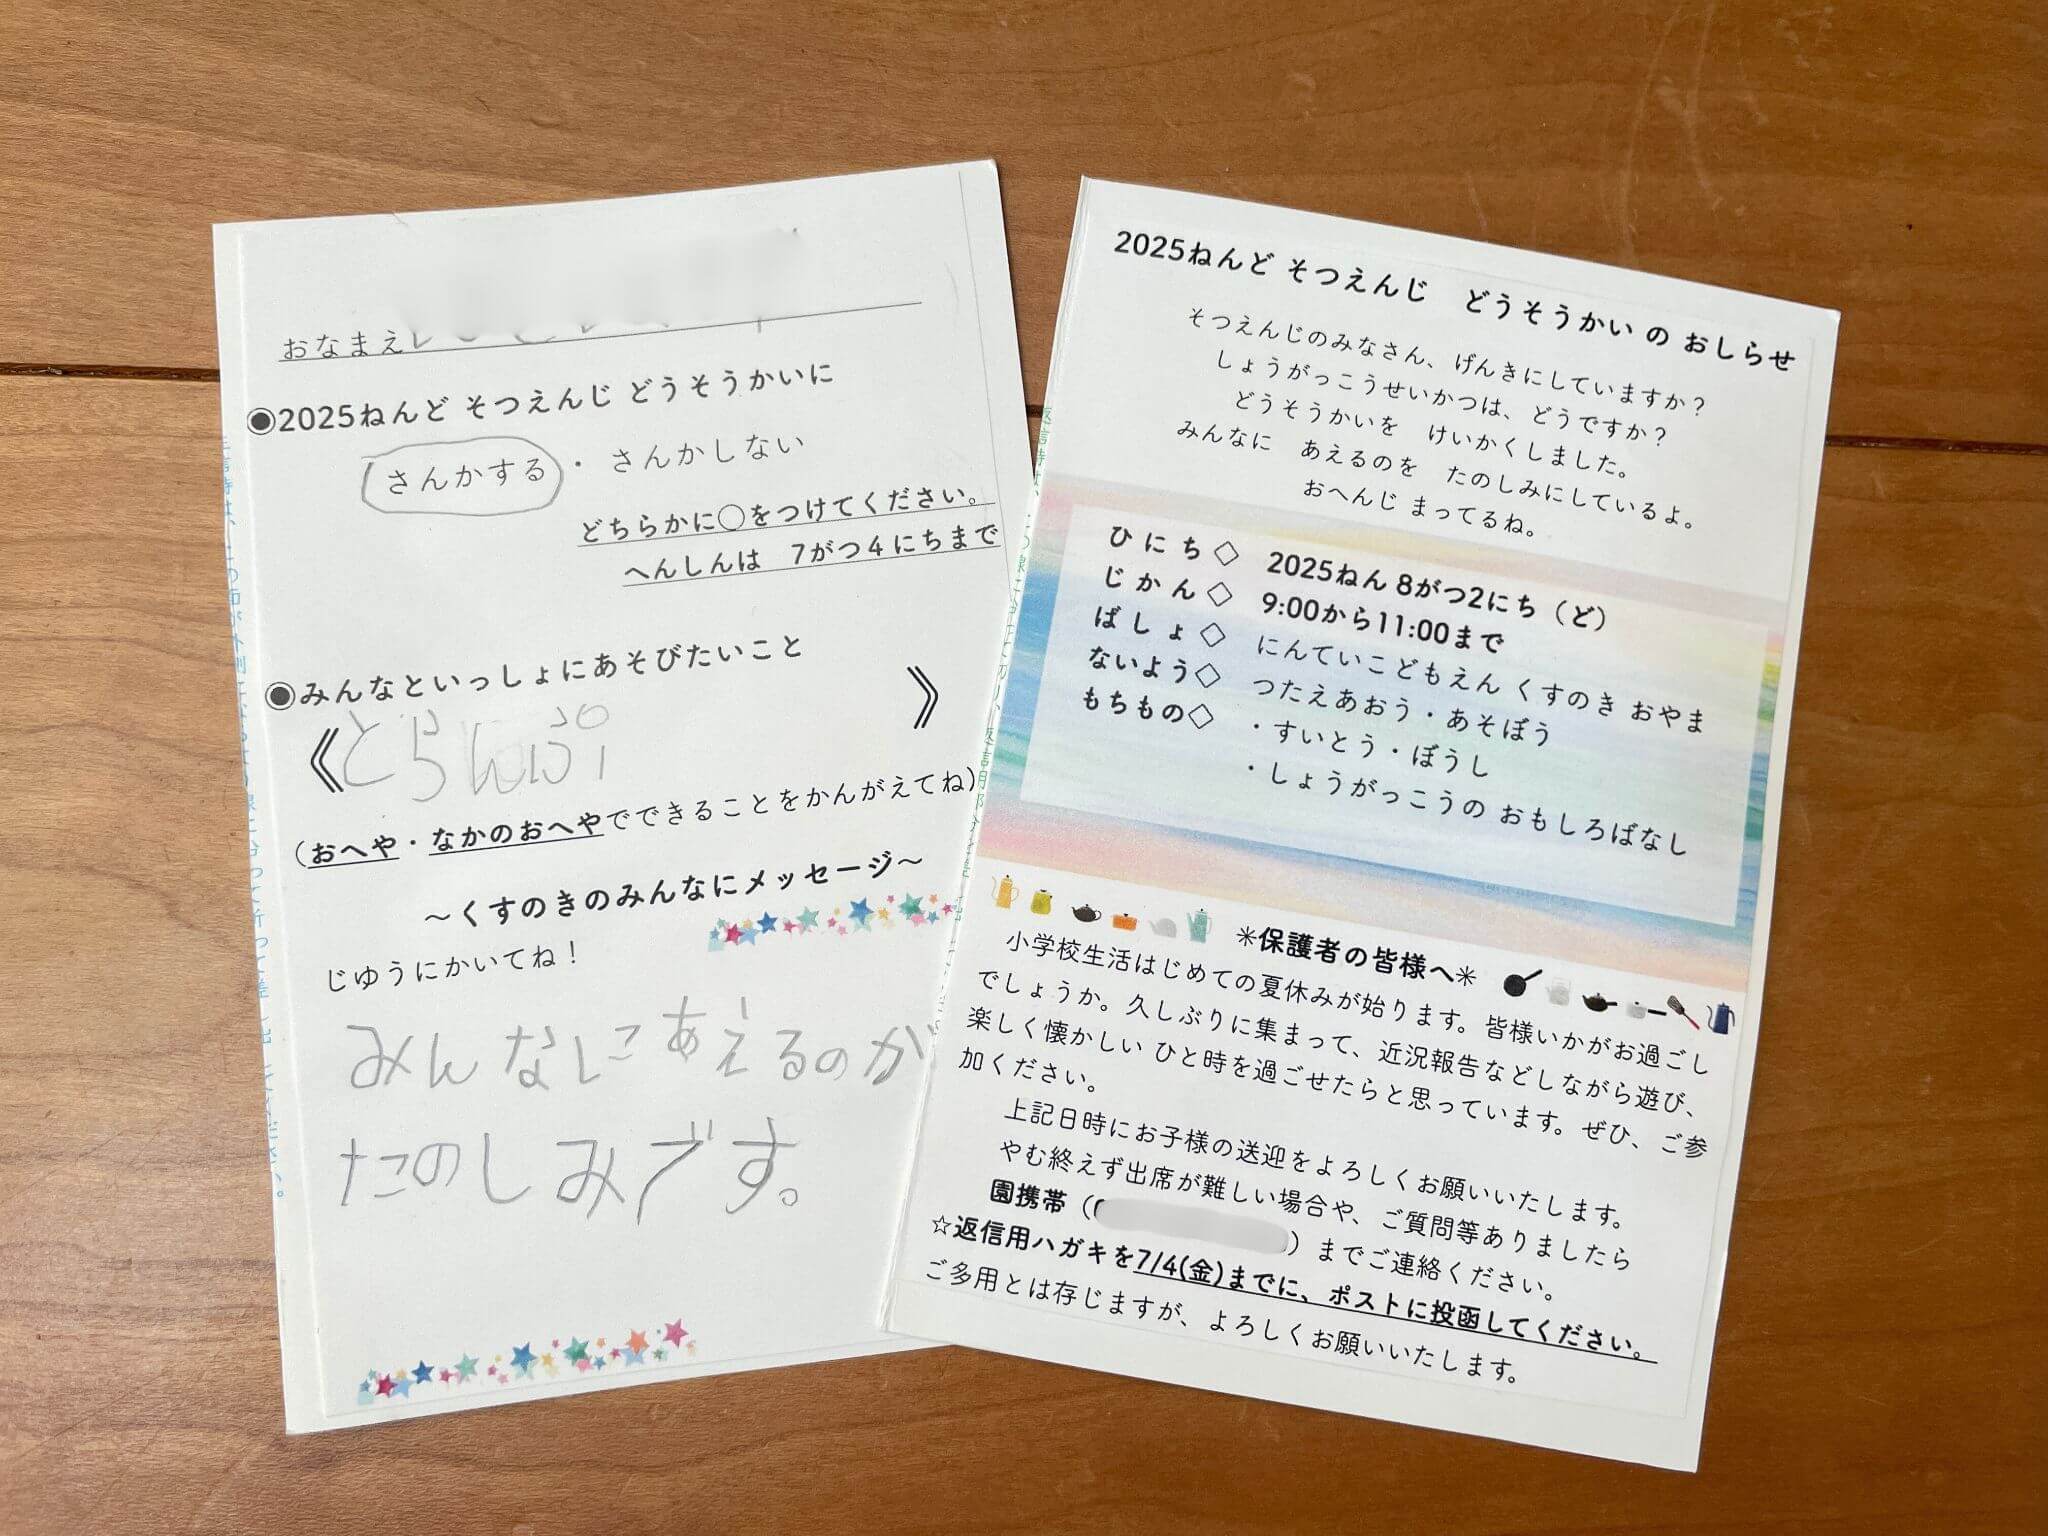 おなまえ
◉2025ねんど そつえんじ どうそうかいに
さんかする ・ さんかしない
どちらかに○をつけてください。
へんしんは 7がつ4にちまで
◉みんなといっしょにあそびたいこと
《とらんぷ》
(おへや・なかのおへやでできることをかんがえてね)
～くすのきのみんなにメッセージ～
じゆうにかいてね！
みんなにあえるのが
たのしみです。
2025ねんど そつえんじ どうそうかい の おしらせ
そつえんじのみなさん、げんきにしていますか？
しょうがっこうせいかつは、どうですか？
どうそうかいを けいかくしました。
みんなに あえるのを たのしみにしているよ。
おへんじ まってるね。
ひにち◇ 2025ねん 8がつ2にち（ど）
じかん◇ 9:00から11:00まで
ばしょ◇ にんていこどもえん くすのき おやま
ないよう◇ つたえあおう・あそぼう
もちもの◇ ・すいとう・ぼうし
・しょうがっこうの おもしろばなし
✳保護者の皆様へ✳
小学校生活はじめての夏休みが始ります。皆様いかがお過ごし
でしょうか。久しぶりに集まって、近況報告などしながら遊び、
楽しく懐かしい ひと時を過ごせたらと思っています。ぜひ、ご参
加ください。
上記日時にお子様の送迎をよろしくお願いいたします。
やむ終えず出席が難しい場合や、ご質問等ありましたら
園携帯（ ）までご連絡ください。
☆返信用ハガキを7/4(金)までに、ポストに投函してください。
ご多用とは存じますが、よろしくお願いいたします。